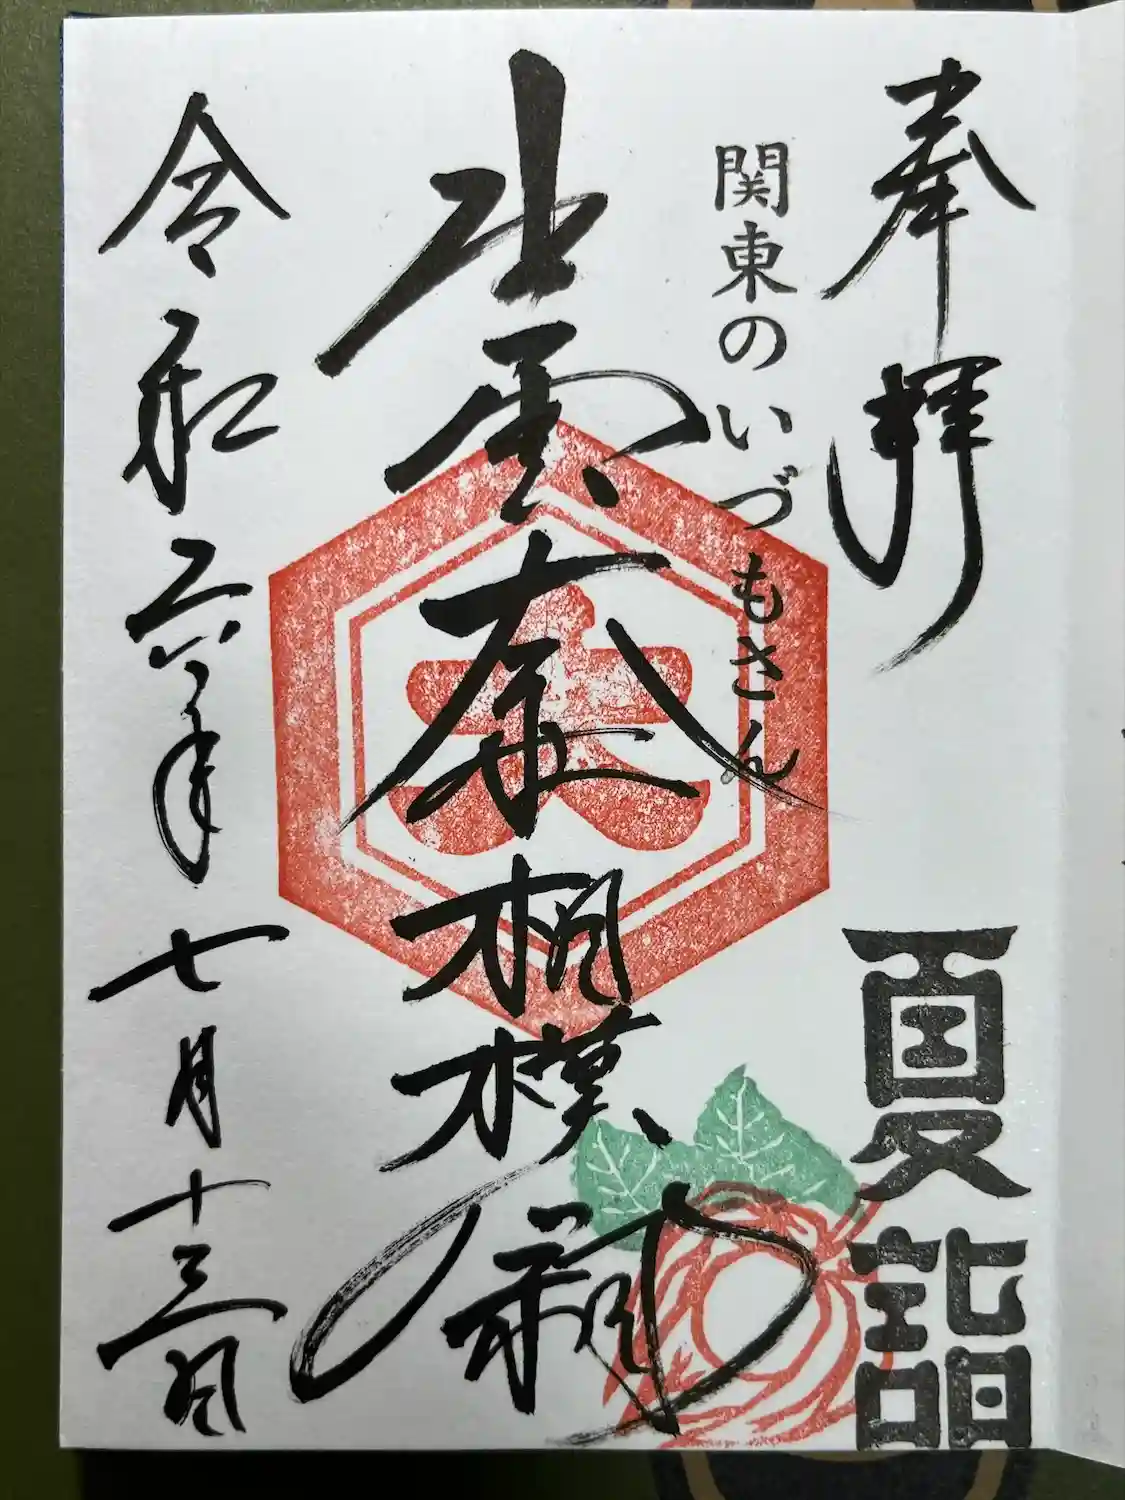 奉拝
夏詣
関東のいづもさん
出雲大社相模分祠
大
令和六年七月十三日